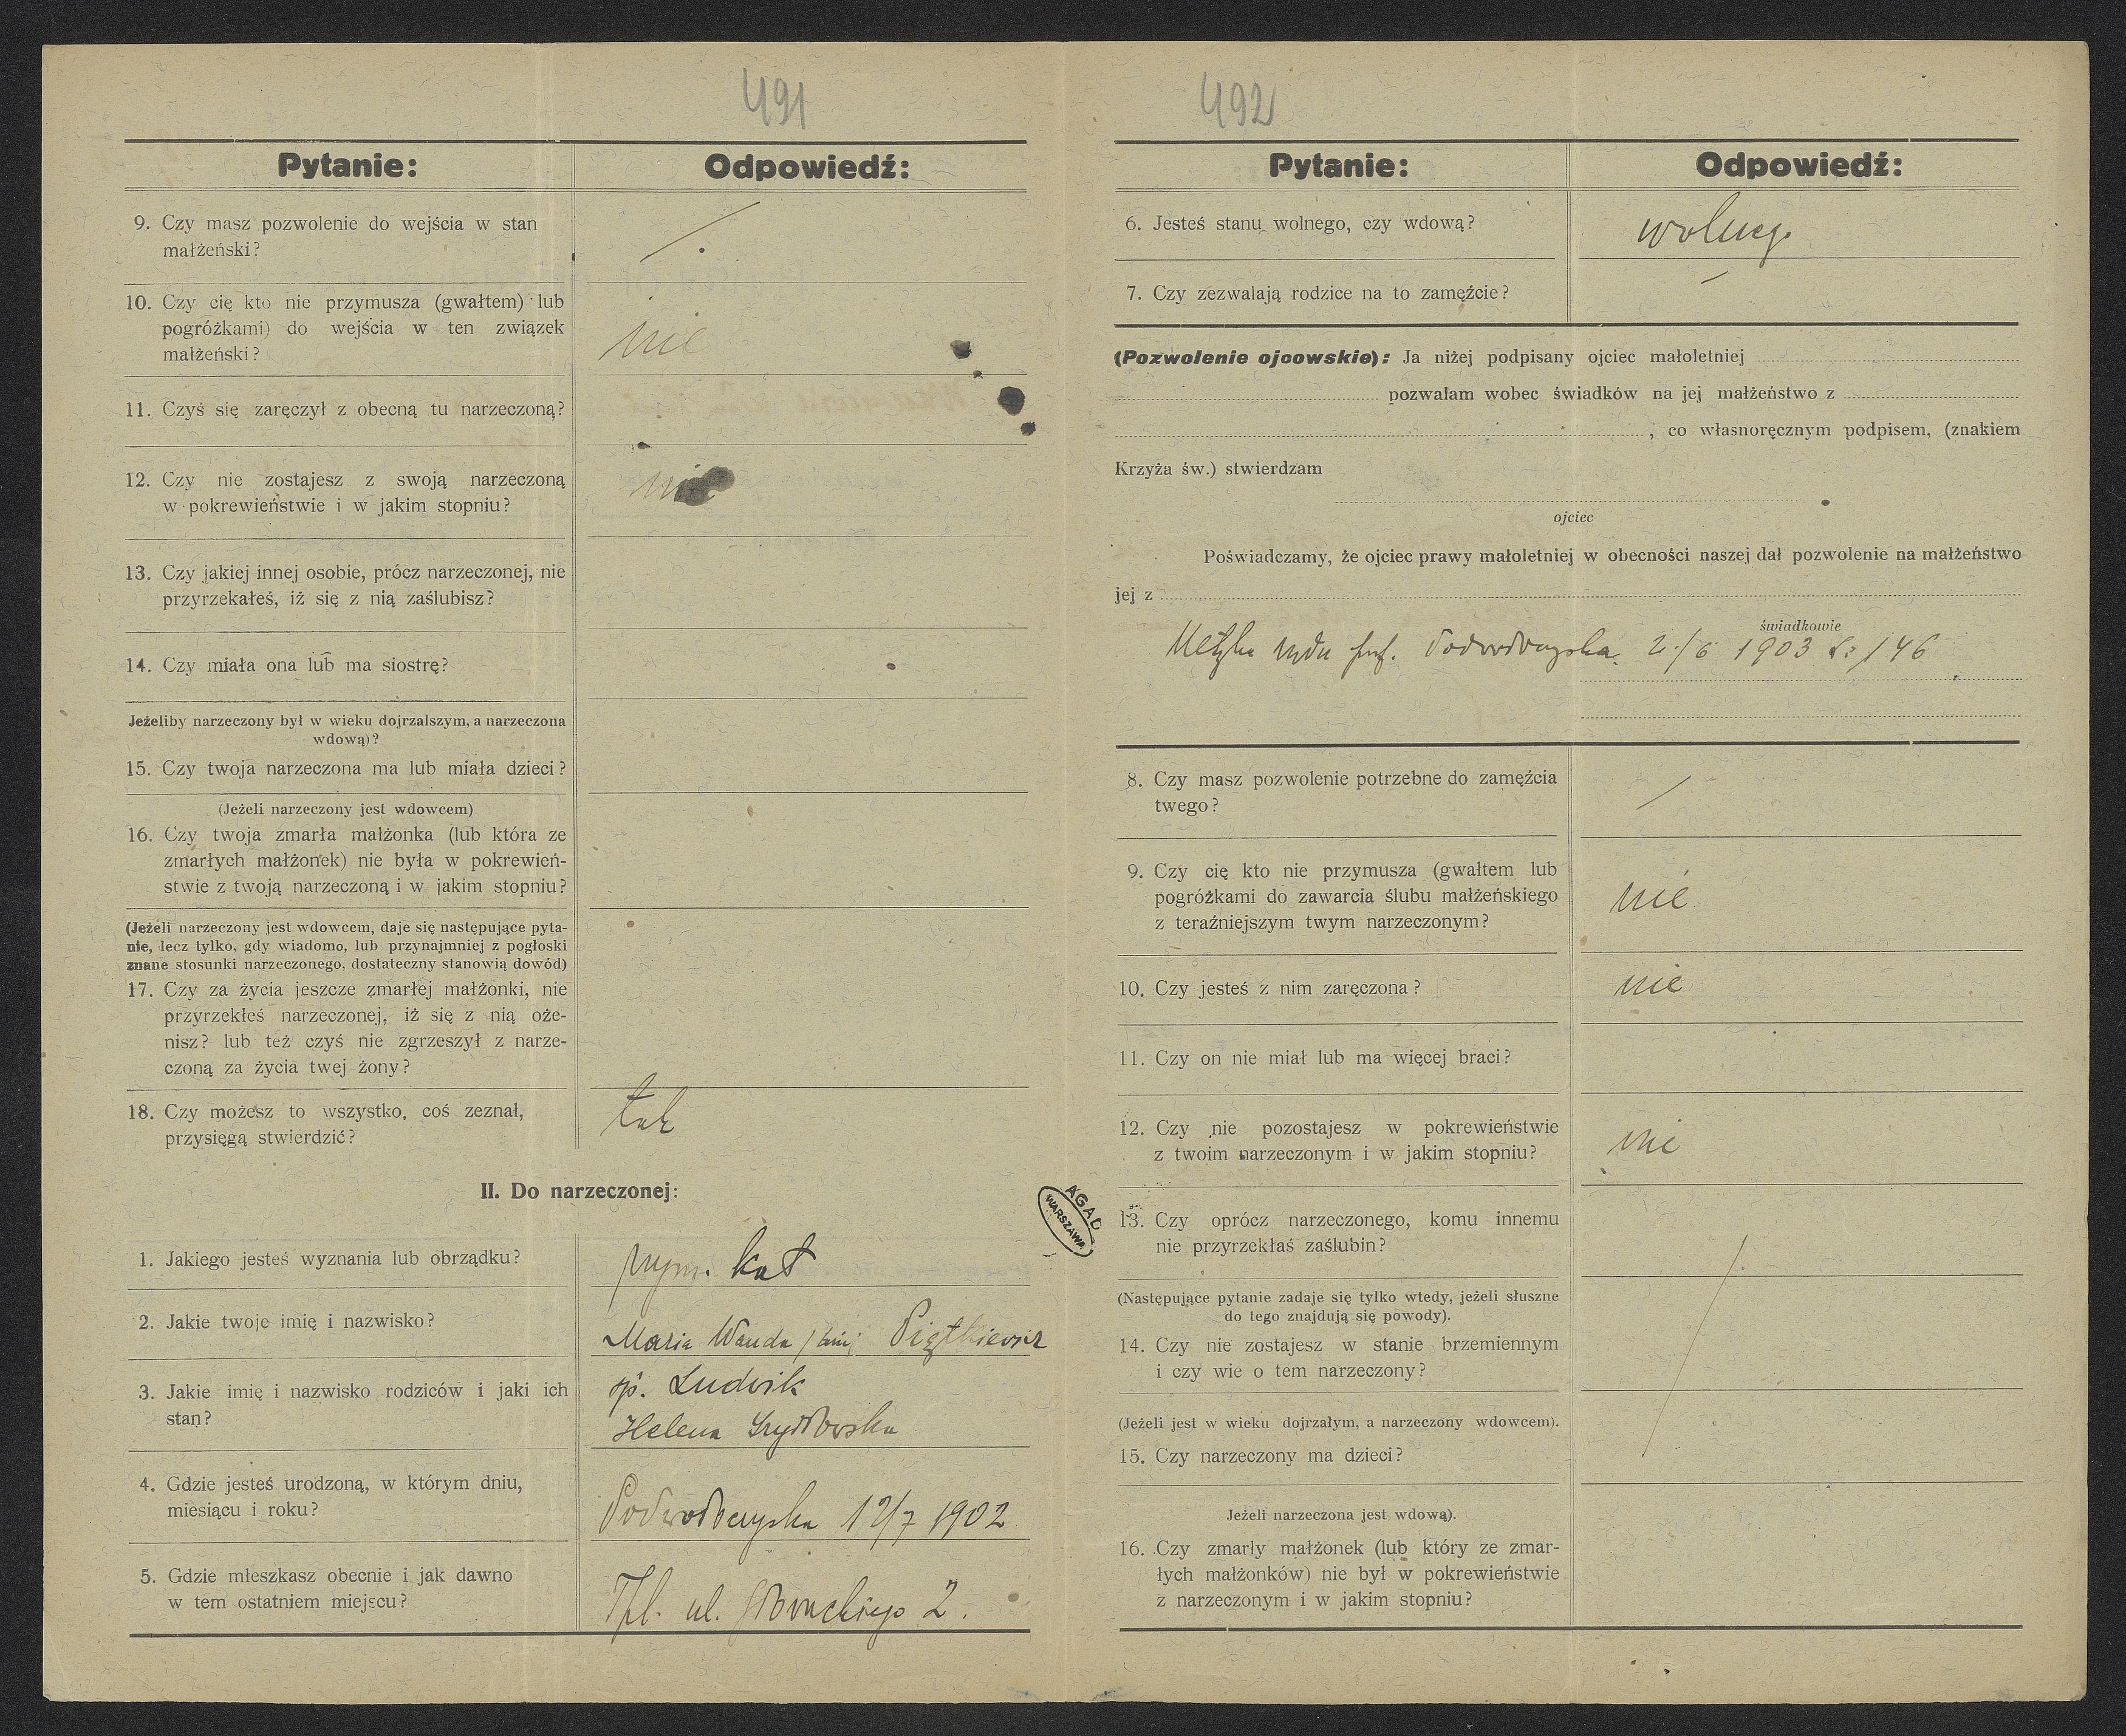 491
Pytanie:
Odpowiedź:
9. Czy masz pozwolenie do wejścia w stan
małżeński?
10. Czy cię kto nie przymusza (gwałtem) lub
pogróżkami) do wejścia w ten związek
małżeński?
nie
11. Czyś się zaręczył z obecną tu narzeczoną?
12. Czy nie zostajesz z swoją narzeczoną
w pokrewieństwie i w jakim stopniu?
nie
13. Czy jakiej innej osobie, prócz narzeczonej, nie
przyrzekałeś, iż się z nią zaślubisz?
14. Czy miała ona lub ma siostrę?
Jeżeliby narzeczony był w wieku dojrzalszym, a narzeczona
wdową)?
15. Czy twoja narzeczona ma lub miała dzieci?
(Jeżeli narzeczony jest wdowcem)
16. Czy twoja zmarła małżonka (lub która ze
zmarłych małżonek) nie była w pokrewień-
stwie z twoją narzeczoną i w jakim stopniu?
(Jeżeli narzeczony jest wdowcem, daje się następujące pyta-
nie, lecz tylko, gdy wiadomo, lub przynajmniej z pogłoski
znane stosunki narzeczonego, dostateczny stanowią dowód)
17. Czy za życia jeszcze zmarłej małżonki, nie
przyrzekłeś narzeczonej, iż się z nią oże-
nisz? lub też czyś nie zgrzeszył z narze-
czoną za życia twej żony?
18. Czy możesz to wszystko, coś zeznał,
przysięgą stwierdzić?
tak
II. Do narzeczonej:
1. Jakiego jesteś wyznania lub obrządku?
rzym. kat
2. Jakie twoje imię i nazwisko?
Maria Wanda Piątkiewicz
3. Jakie imię i nazwisko rodziców i jaki ich
stan?
śp. Ludwik
Helena Szydłowska
4. Gdzie jesteś urodzoną, w którym dniu,
miesiącu i roku?
Podwołoczyska 12/7 1902
5. Gdzie mieszkasz obecnie i jak dawno
w tem ostatniem miejscu?
Tpl. ul. Głowackiego 2.
AGAD
WARSZAWA
492
Pytanie:
Odpowiedź:
6. Jesteś stanu wolnego, czy wdową?
wolnego
7. Czy zezwalają rodzice na to zamęźcie?
(Pozwolenie ojcowskie): Ja niżej podpisany ojciec małoletniej
pozwalam wobec świadków na jej małżeństwo z
, co własnoręcznym podpisem, (znakiem
Krzyża św.) stwierdzam
ojciec
Poświadczamy, że ojciec prawy małoletniej w obecności naszej dał pozwolenie na małżeństwo
jej z
świadkowie
Metryka Podwołoczyska 2/6 1903 L: 146
8. Czy masz pozwolenie potrzebne do zamęźcia
twego?
9. Czy cię kto nie przymusza (gwałtem lub
pogróżkami do zawarcia ślubu małżeńskiego
z teraźniejszym twym narzeczonym?
nie
10. Czy jesteś z nim zaręczona?
nie
11. Czy on nie miał lub ma więcej braci?
12. Czy nie pozostajesz w pokrewieństwie
z twoim narzeczonym i w jakim stopniu?
nie
13. Czy oprócz narzeczonego, komu innemu
nie przyrzekłaś zaślubin?
(Następujące pytanie zadaje się tylko wtedy, jeżeli słuszne
do tego znajdują się powody).
14. Czy nie zostajesz w stanie brzemiennym
i czy wie o tem narzeczony?
(Jeżeli jest w wieku dojrzałym, a narzeczony wdowcem).
15. Czy narzeczony ma dzieci?
Jeżeli narzeczona jest wdową).
16. Czy zmarły małżonek (lub który ze zmar-
łych małżonków) nie był w pokrewieństwie
z narzeczonym i w jakim stopniu?